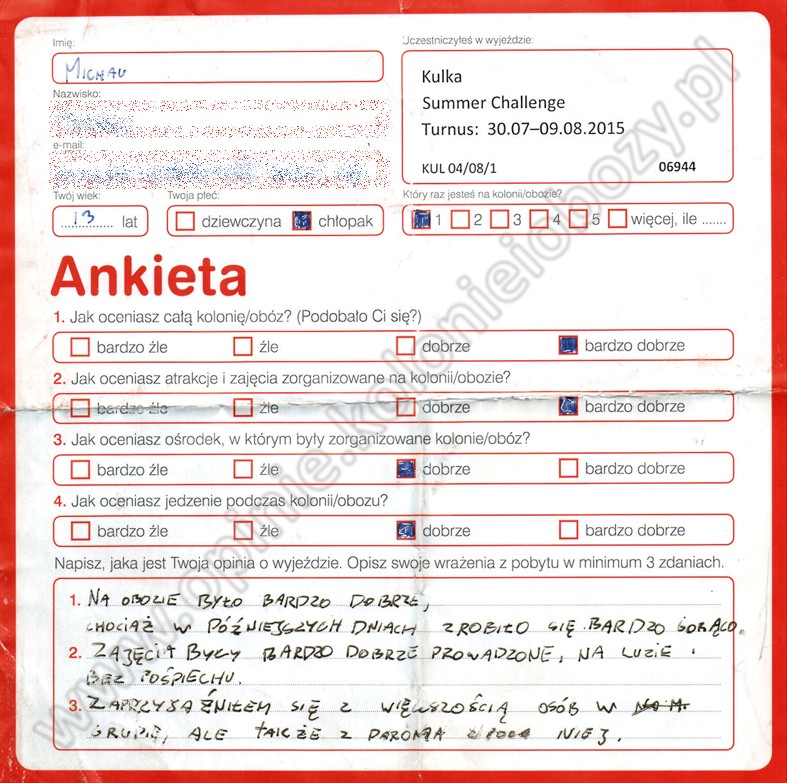 Imię:
MICHAŁ
Uczestniczyłeś w wyjeździe:
Kulka
Summer Challenge
Turnus: 30.07–09.08.2015
KUL 04/08/1 06944
Nazwisko:
e-mail:
Twój wiek:
13 lat
Twoja płeć:
dziewczyna chłopak
Który raz jesteś na kolonii/obozie?
1 2 3 4 5 więcej, ile .......
Ankieta
1. Jak oceniasz całą kolonię/obóz? (Podobało Ci się?)
bardzo źle źle dobrze bardzo dobrze
2. Jak oceniasz atrakcje i zajęcia zorganizowane na kolonii/obozie?
bardzo źle źle dobrze bardzo dobrze
3. Jak oceniasz ośrodek, w którym były zorganizowane kolonie/obóz?
bardzo źle źle dobrze bardzo dobrze
4. Jak oceniasz jedzenie podczas kolonii/obozu?
bardzo źle źle dobrze bardzo dobrze
Napisz, jaka jest Twoja opinia o wyjeździe. Opisz swoje wrażenia z pobytu w minimum 3 zdaniach.
1. NA OBOZIE BYŁO BARDZO DOBRZE,
CHOCIAŻ W PÓŹNIEJSZYCH DNIACH ZROBIŁO SIĘ BARDZO GORĄCO.
2. ZAJĘCIA BYŁY BARDZO DOBRZE PROWADZONE, NA LUZIE I
BEZ POŚPIECHU.
3. ZAPRZYJAŹNIŁEM SIĘ Z WIĘKSZOŚCIĄ OSÓB W
GRUPIE, ALE TAKŻE Z PAROMA NIEJ.
www.opinie.kolonieiobozy.pl